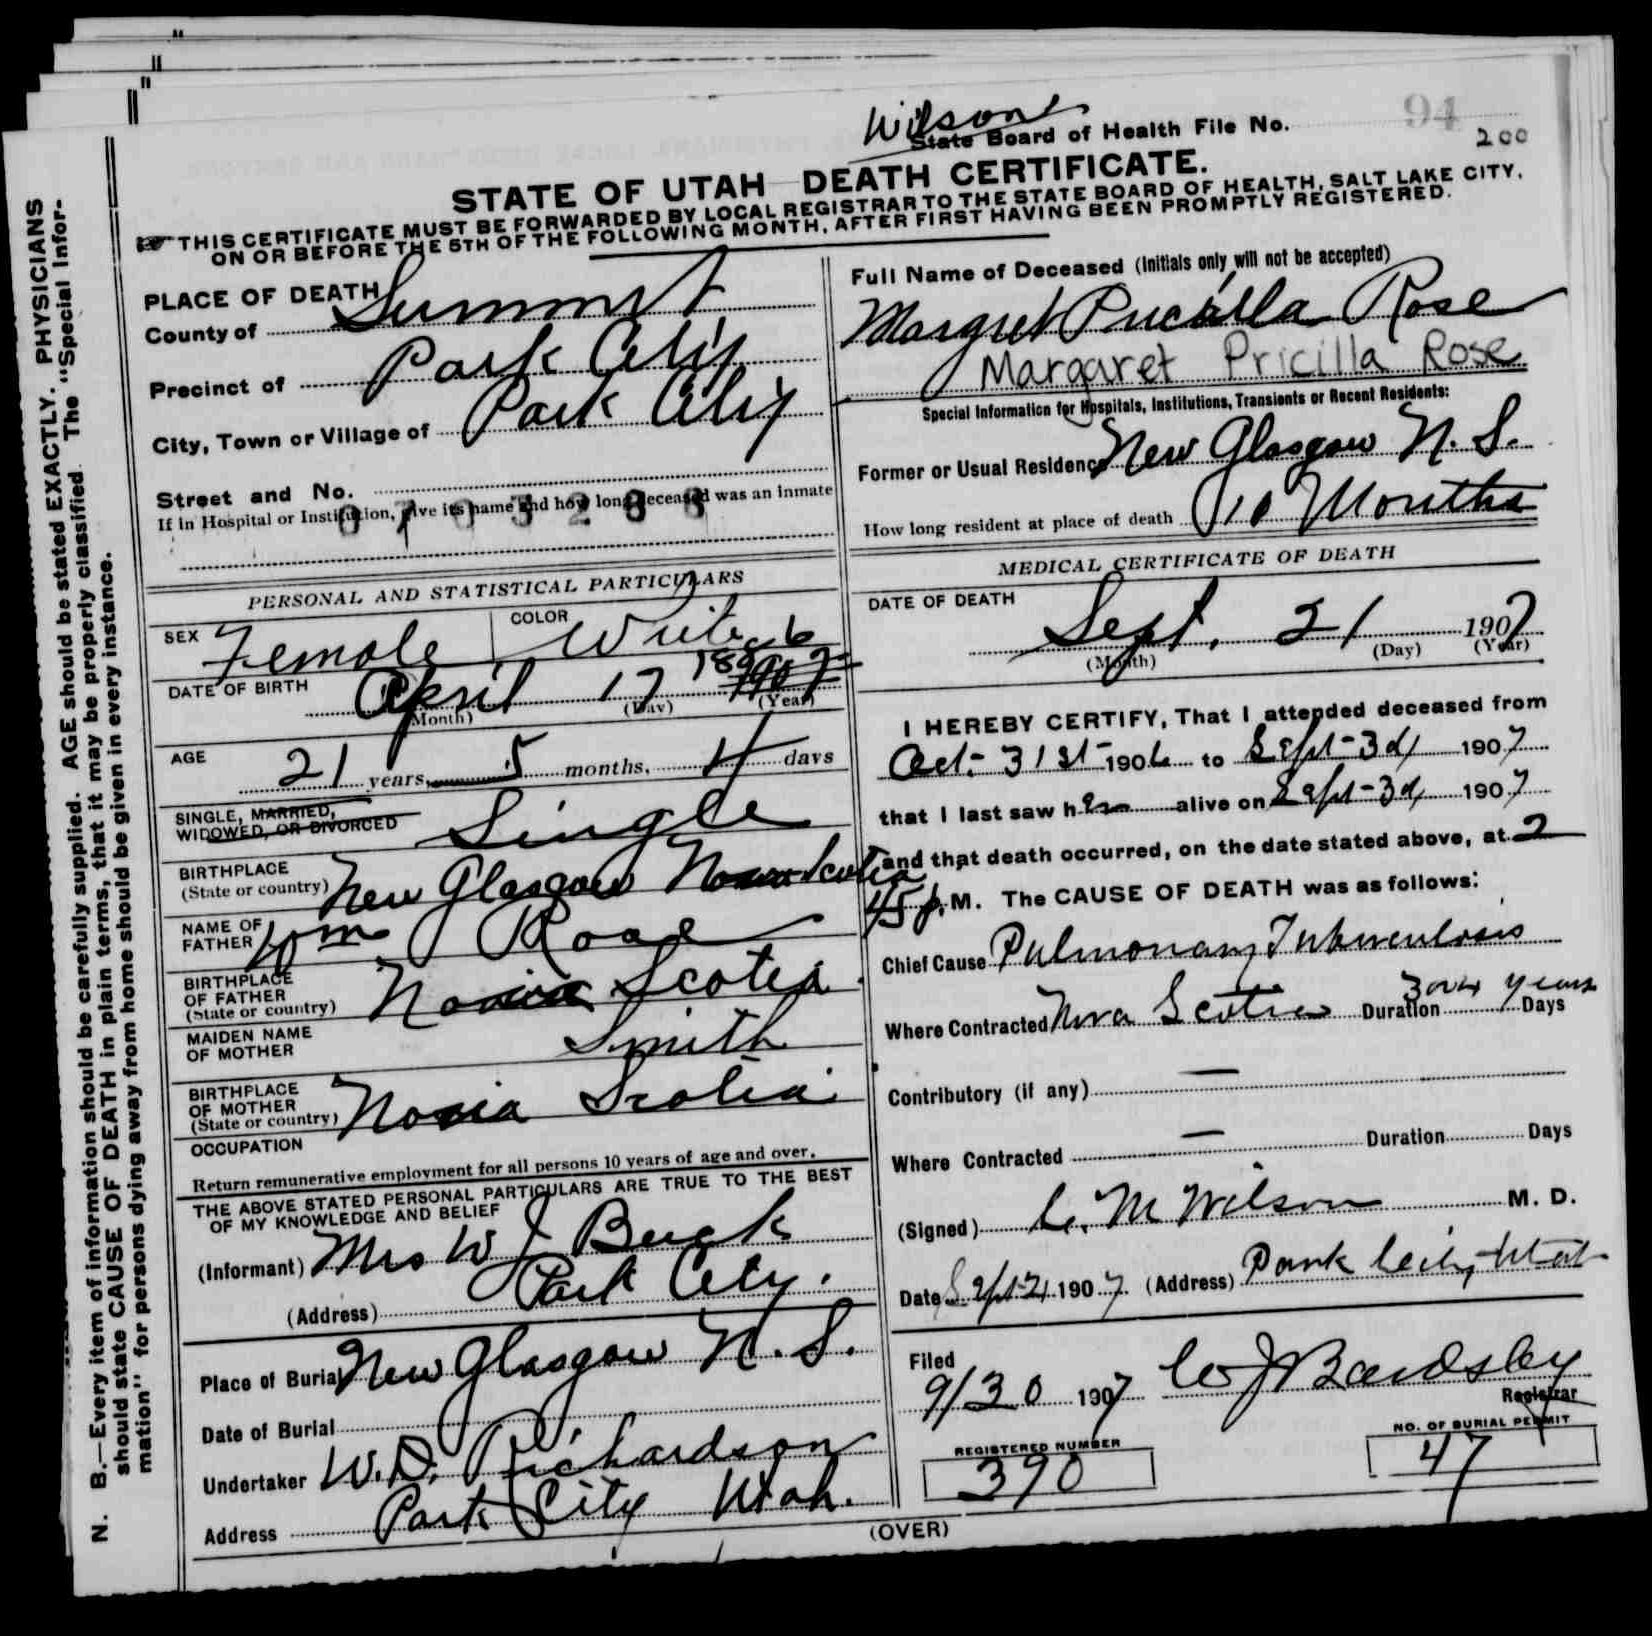 N. B.—Every item of information should be carefully supplied. AGE should be stated EXACTLY. PHYSICIANS
should state CAUSE OF DEATH in plain terms, that it may be properly classified. The "Special Infor-
mation" for persons dying away from home should be given in every instance.
Wilson
State Board of Health File No. 94
200
STATE OF UTAH DEATH CERTIFICATE.
THIS CERTIFICATE MUST BE FORWARDED BY LOCAL REGISTRAR TO THE STATE BOARD OF HEALTH, SALT LAKE CITY,
ON OR BEFORE THE 5TH OF THE FOLLOWING MONTH, AFTER FIRST HAVING BEEN PROMPTLY REGISTERED.
PLACE OF DEATH
County of Summit
Precinct of Park City
City, Town or Village of Park City
Street and No.
If in Hospital or Institution, give its name and how long deceased was an inmate
PERSONAL AND STATISTICAL PARTICULARS
SEX Female COLOR White
DATE OF BIRTH April 17 1886 1907
(Month) (Day) (Year)
AGE 21 years, 5 months, 4 days
SINGLE, MARRIED,
WIDOWED, OR DIVORCED Single
BIRTHPLACE
(State or country) New Glasgow Nova Scotia
NAME OF
FATHER Wm Rose
BIRTHPLACE
OF FATHER
(State or country) Novia Scotia
MAIDEN NAME
OF MOTHER Smith
BIRTHPLACE
OF MOTHER
(State or country) Novia Scotia
OCCUPATION
Return remunerative employment for all persons 10 years of age and over.
THE ABOVE STATED PERSONAL PARTICULARS ARE TRUE TO THE BEST
OF MY KNOWLEDGE AND BELIEF
(Informant) Mrs W J Buck
(Address) Park City.
Place of Burial New Glasgow N. S.
Date of Burial
Undertaker W. D. Richardson
Address Park City Utah.
Full Name of Deceased (Initials only will not be accepted)
Margret Pricilla Rose
Margaret Pricilla Rose
Special Information for Hospitals, Institutions, Transients or Recent Residents:
Former or Usual Residence New Glasgow N. S.
How long resident at place of death 10 Months
MEDICAL CERTIFICATE OF DEATH
DATE OF DEATH
Sept. 21 1907
(Month) (Day) (Year)
I HEREBY CERTIFY, That I attended deceased from
Oct- 31st- 1906 to Sept- 3d, 1907
that I last saw her alive on Sept- 3d, 1907
and that death occurred, on the date stated above, at 2
45 p. M. The CAUSE OF DEATH was as follows:
Chief Cause Pulmonary Tuberculosis
Where Contracted Nova Scotia Duration 3 or 4 years Days
Contributory (if any) —
Where Contracted — Duration Days
(Signed) C. M Wilson M. D.
Date Sept 21 1907. (Address) Park City, Utah
Filed
9/30 1907 W J Bardsley
Registrar
REGISTERED NUMBER
390
NO. OF BURIAL PERMIT
47
(OVER)